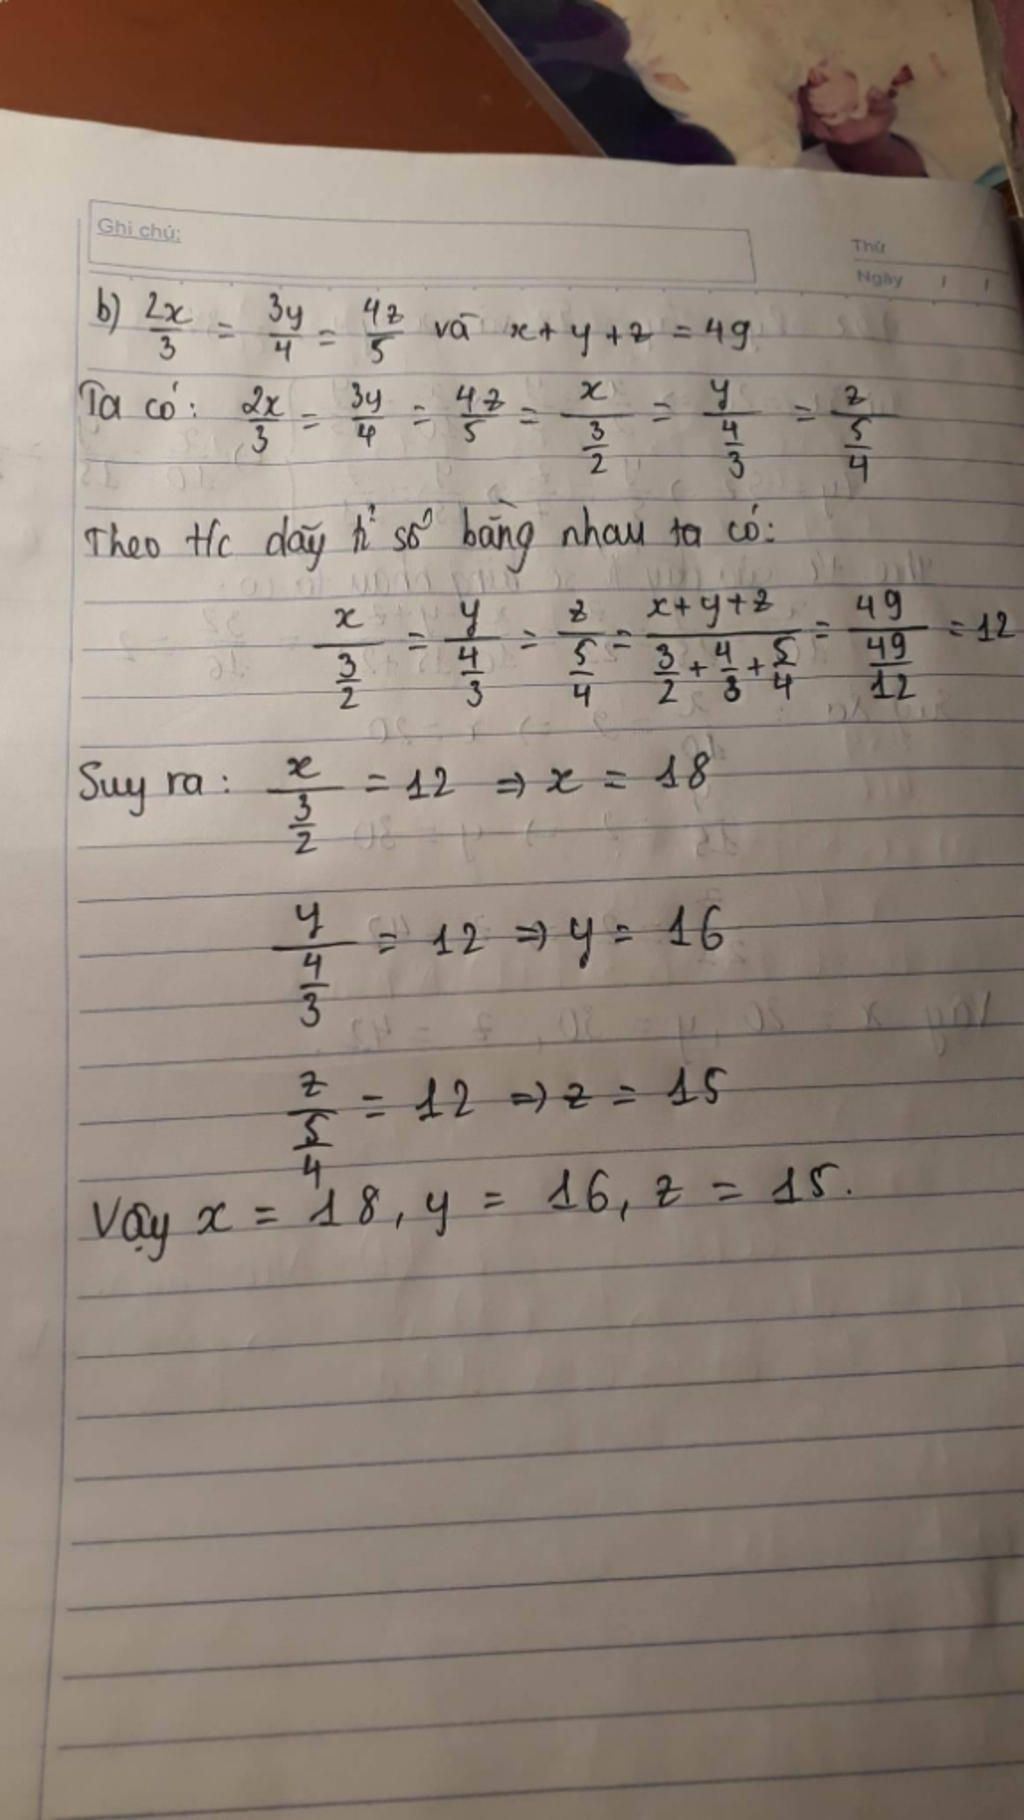 Ghi chú:
Thứ
Ngày / /
b) 2x/3 = 3y/4 = 4z/5 và x + y + z = 49
Ta có: 2x/3 = 3y/4 = 4z/5 = x/(3/2) = y/(4/3) = z/(5/4)
Theo t/c dãy tỉ số bằng nhau ta có:
x/(3/2) = y/(4/3) = z/(5/4) = (x+y+z)/(3/2 + 4/3 + 5/4) = 49/(49/12) = 12
Suy ra: x/(3/2) = 12 => x = 18
y/(4/3) = 12 => y = 16
z/(5/4) = 12 => z = 15
Vậy x = 18, y = 16, z = 15.